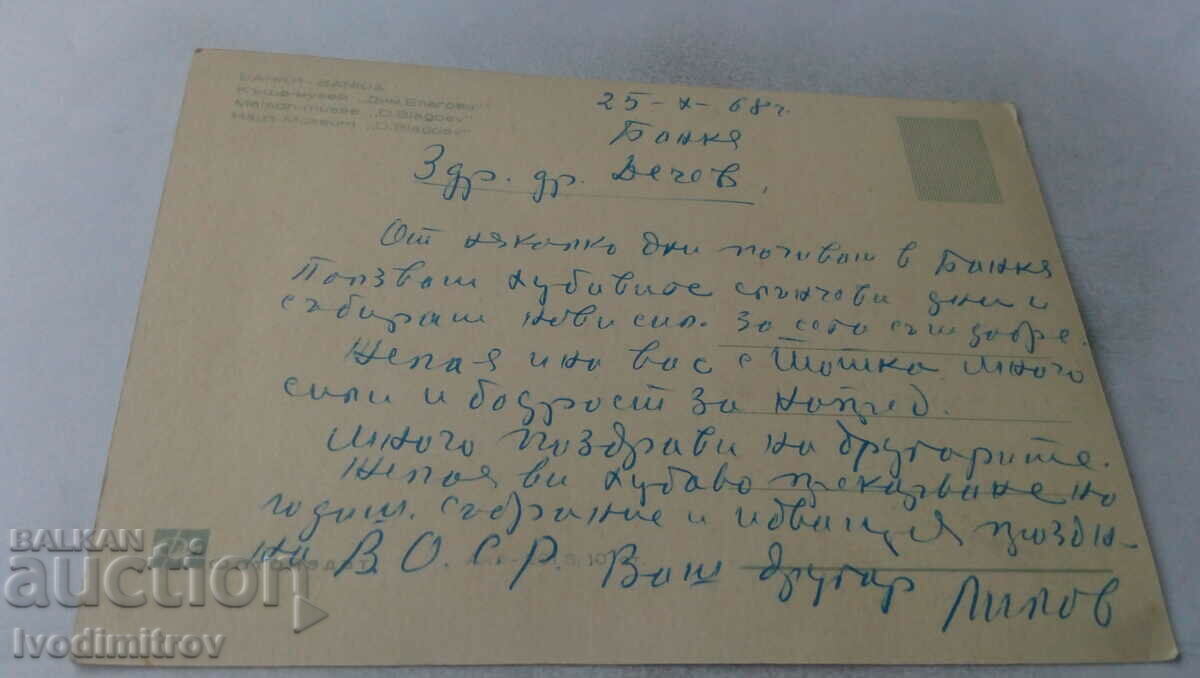 БАНКЯ - BANKIA
Къща-музей „Дим. Благоев“
Maison-musée „D. Blagoev“
Haus-Museum „D. Blagoev“
25-X-68 г.
Банкя
Здр. др. Дечев,
От няколко дни почивам в Банкя
Ползвам хубавите слънчеви дни и
събирам нови сили. За сега съм добре.
Желая и на вас с Тошка много
сили и бодрост за напред.
Много поздрави на другарите.
Желая ви хубаво прекарване на
годиш. събрание и идващия праздн-
на В.О.С.Р. Ваш другар Лилов
BALKAN
auction
Ivodimitrov